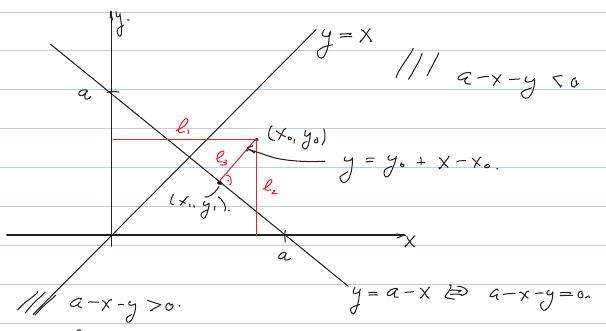 y.
y = x
/// a-x-y < 0
a
l₁
(x₀, y₀)
l₃
y = y₀ + x - x₀.
l₂
(x₁, y₁).
x
a
/// a-x-y > 0.
y = a-x ⇔ a-x-y = 0.